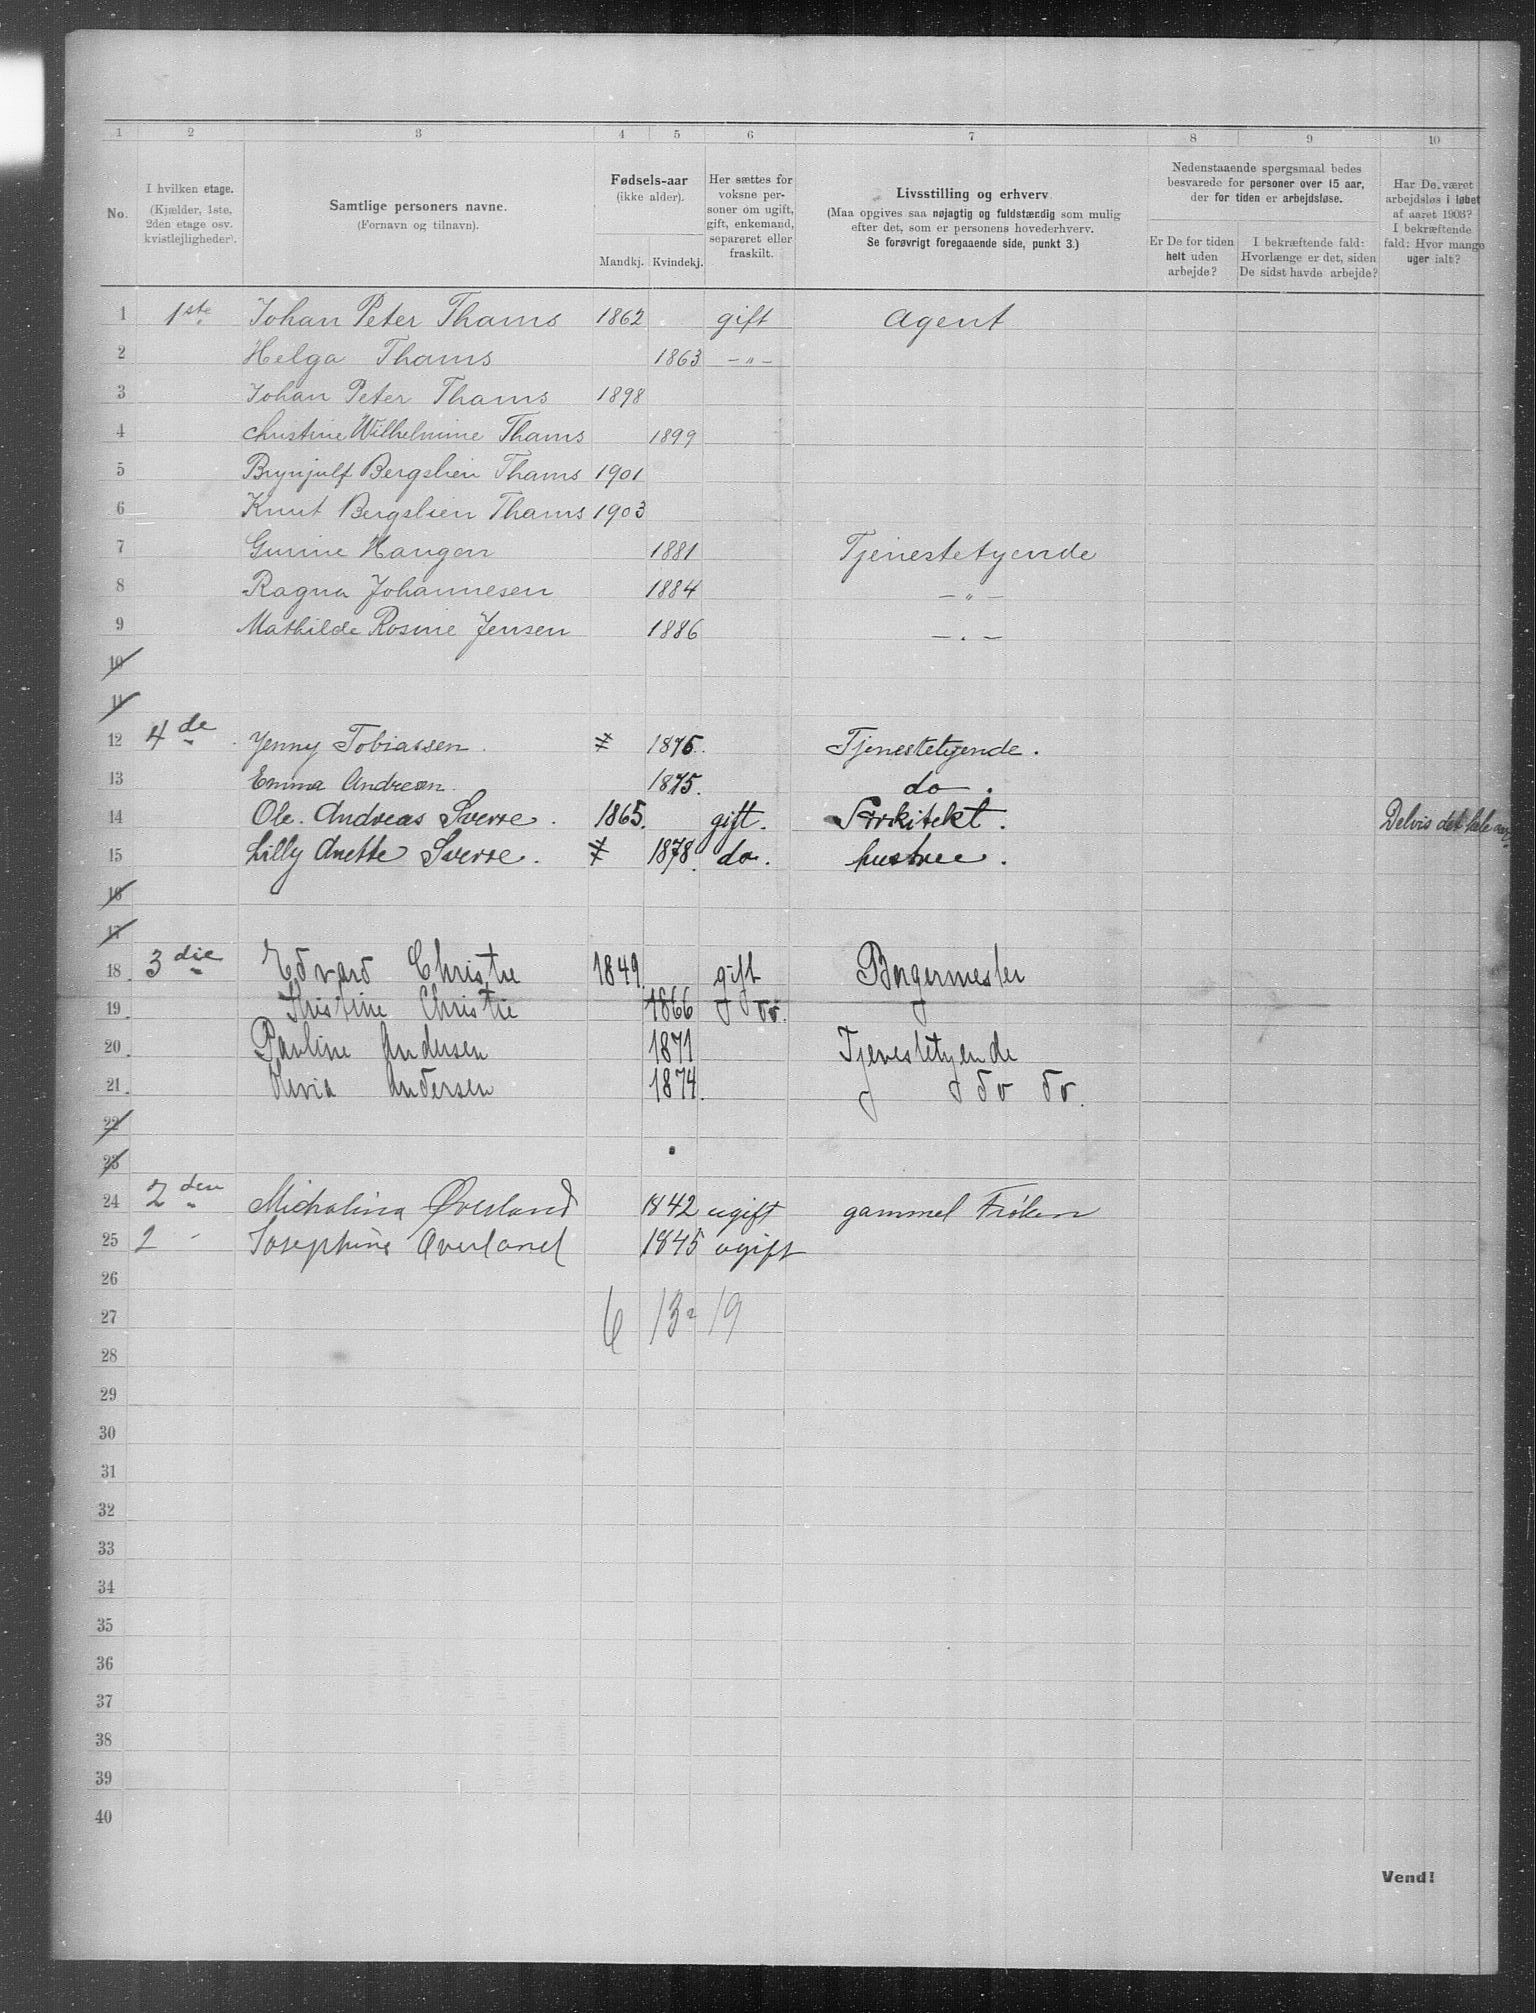 1 2 3 4 5 6 7 8 9 10
No. I hvilken etage. (Kjælder, 1ste, 2den etage osv. kvistleiligheder). Samtlige personers navne. (Fornavn og tilnavn). Fødsels-aar (ikke alder). Mandkj. Kvindekj. Her sættes for voksne personer om ugift, gift, enkemand, separeret eller fraskilt. Livsstilling og erhverv. (Maa opgives saa nøjagtig og fuldstærdig som mulig efter det, som er personens hovederhverv. Se forøvrigt foregaaende side, punkt 3.) Nedenstaaende spørgsmaal bedes besvarede for personer over 15 aar, der for tiden er arbejdsløse. Er De for tiden helt uden arbejde? I bekræftende fald: Hvorlænge er det, siden De sidst havde arbejde? Har De været arbejdsløs i løbet af aaret 1903? I bekræftende fald: Hvor mange uger ialt?
1 1ste Johan Peter Thams 1862 gift Agent
2 Helga Thams 1863 -"-
3 Johan Peter Thams 1898
4 Christine Wilhelmine Thams 1899
5 Brynjulf Bergslien Thams 1901
6 Knut Bergslien Thams 1903
7 Gurine Haugen 1881 Tjenestetyende
8 Ragna Johannesen 1884 -"-
9 Mathilde Rosine Jensen 1886 -"-
10
11
12 4de Jenny Tobiassen 1875. Tjenestetyende.
13 Emma Andresen. 1875. do.
14 Ole Andreas Sverre. 1865. gift. Arkitekt. Delvis det hele aar.
15 Lilly Anette Sverre. 1878. do. hustru.
16
17
18 3die Edvard Christie 1849. gift Borgermester
19 Kristine Christie 1866 do.
20 Pauline Andersen 1871 Tjenestetyende
21 Olivia Andersen 1874. do do.
22
23
24 2den Michaline Øverland 1842 ugift gammel Frøken
25 2 - Josephine Øverland 1845 ugift
26
27 6 13 = 19
28
29
30
31
32
33
34
35
36
37
38
39
40
Vend!